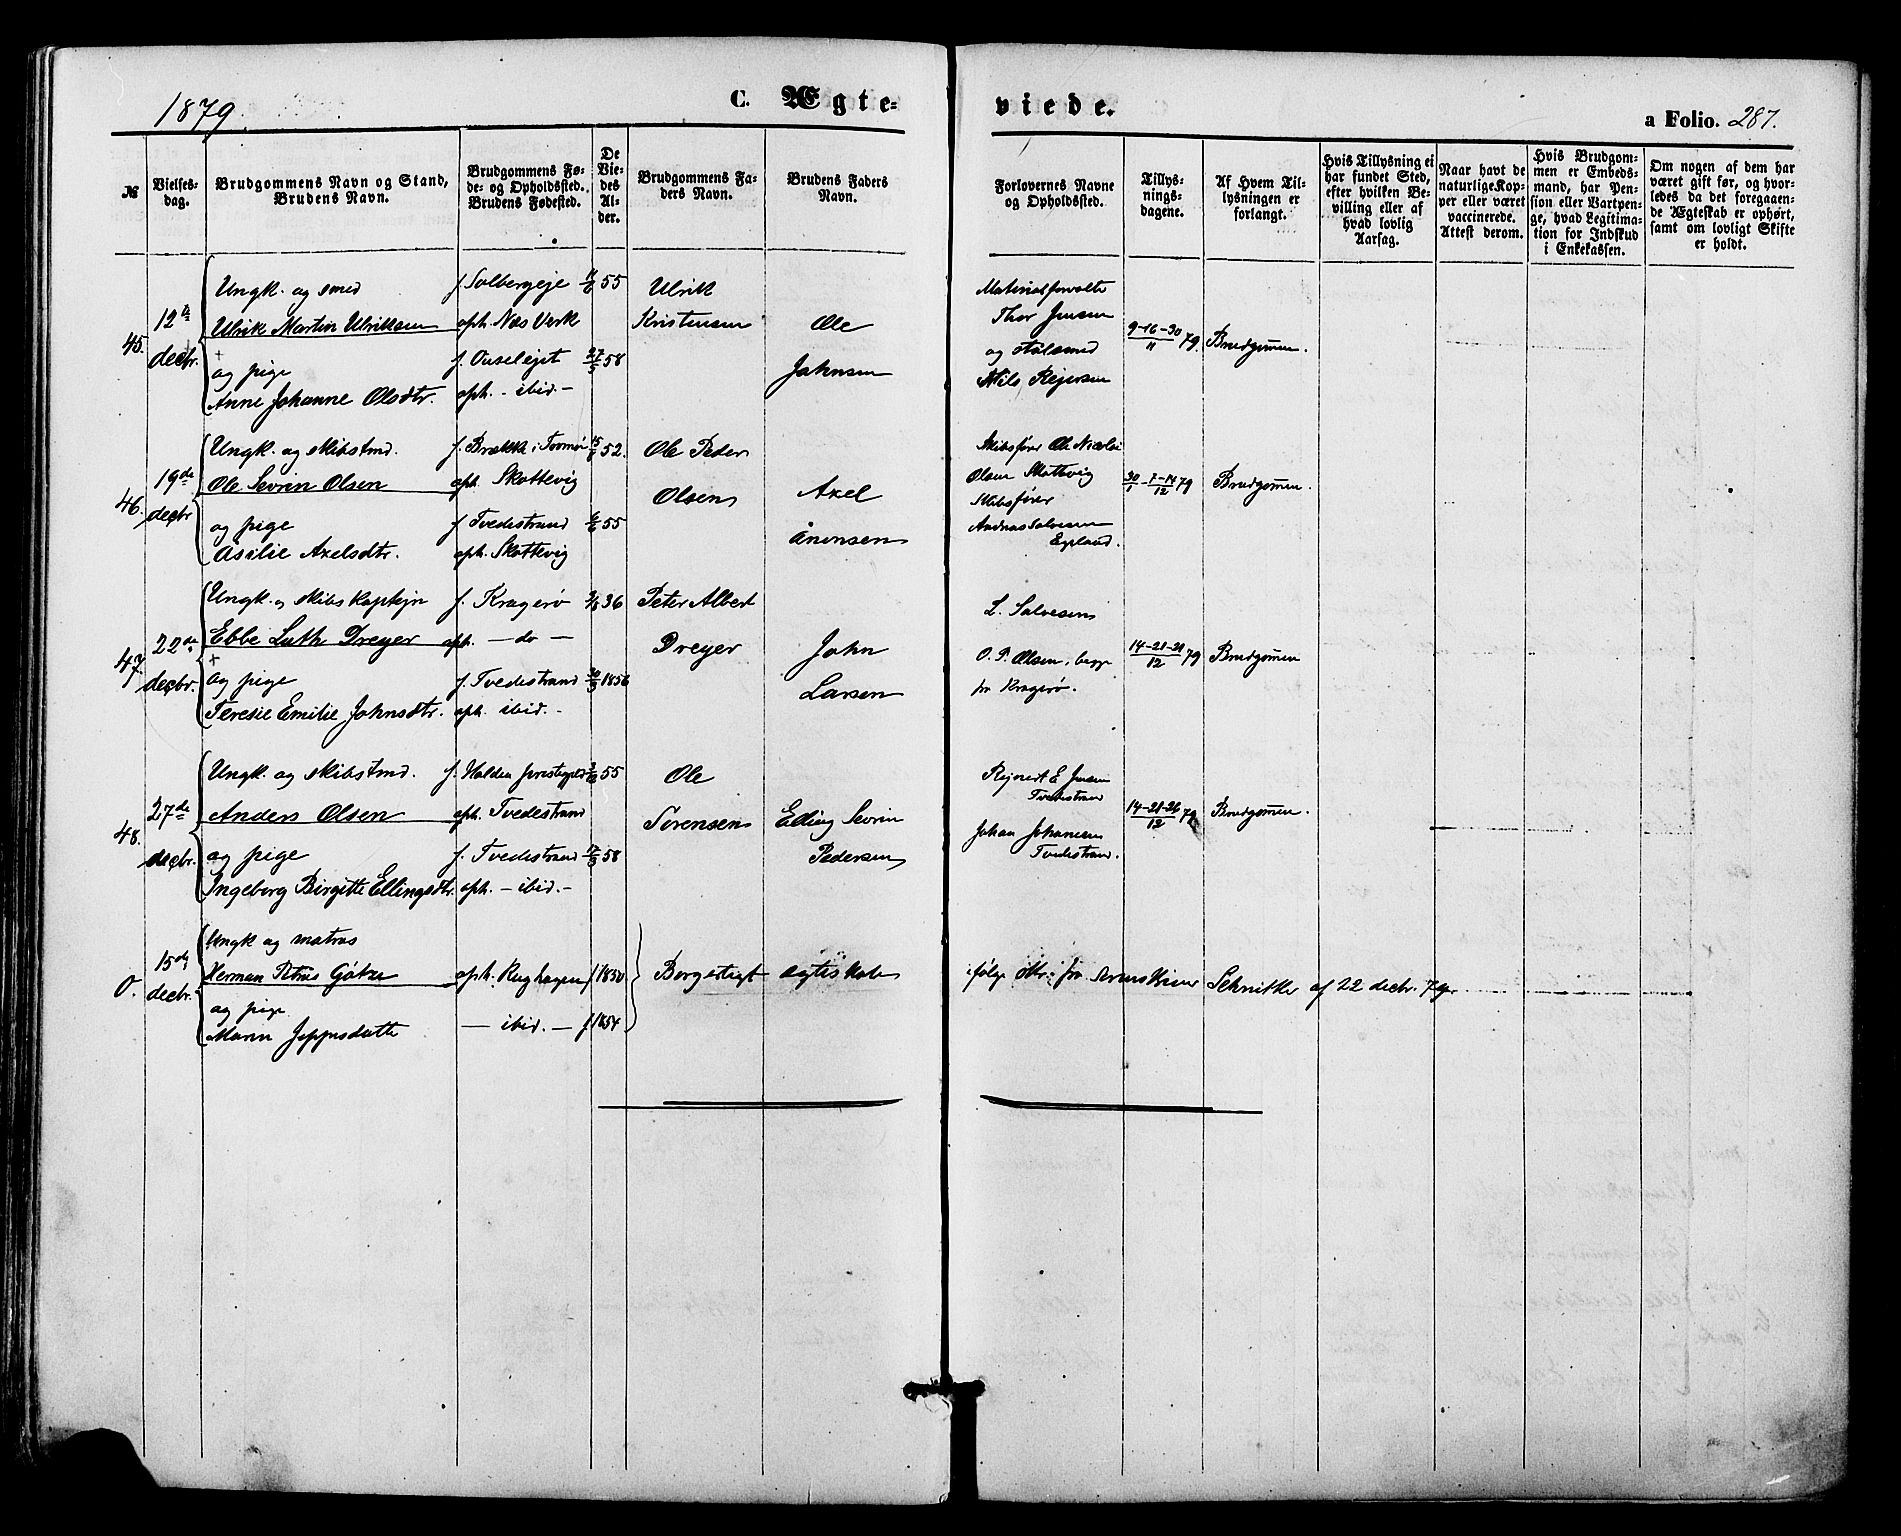 1879.
C. Ægte-
viede.
a Folio. 287.
№
Vielses-
dag.
Brudgommens Navn og Stand,
Brudens Navn.
Brudgommens Fø-
de- og Opholdssted.
Brudens Fødested.
De
Vie-
des
Al-
der.
Brudgommens Fa-
ders Navn.
Brudens Faders
Navn.
Forlovernes Navne
og Opholdssted.
Tillys-
nings-
dagene.
Af Hvem Til-
lysningen er
forlangt.
Hvis Tillysning ei
har fundet Sted,
efter hvilken Be-
villing eller af
hvad lovlig
Aarsag.
Naar havt de
naturlige Kop-
per eller været
vaccinerede.
Attest derom.
Hvis Brudgom-
men er Embeds-
mand, har Pen-
sion eller Vartpen-
ge, hvad Legitima-
tion for Indskud
i Enkekassen.
Om nogen af dem har
været gift før, og hvor-
ledes da det foregaaen-
de Ægteskab er ophørt,
samt om lovligt Skifte
er holdt.
45.
12te
decbr.
Ungk. og smed
Ulrik Martin Ulriksen
og pige
Anne Johanne Olsdtr.
f. Solbergeje
oph. Næs Verk
f. Ouselejet
oph. - ibid -
11/6 55
27/5 58
Ulrik
Kristensen
Ole
Johnsen
Materialforvalter
Thor Jensen
og stålsmed
Nils Rejersen
9-16-30/11 79.
Brudgommen.
46.
19de
decbr
Ungk. og skibstmd.
Ole Severin Olsen
og pige
Asilie Axelsdtr.
f. Brække i Tromø
oph. Skottevig
f. Tvedestrand
oph. Skottevig
15/6 52.
6/6 55
Ole Peder
Olsen
Axel
Ånensen
Skibsfører Ole Nicolai
Olsen Skottevig
Skibsfører
Andreas Salvesen
Egeland.
30/1 - 7-14/12 79
Brudgommen.
47.
22de
decbr.
Ungk. og skibskaptejn
Ebbe Luth Dreyer
og pige
Teresie Emilie Johnsdtr.
f. Kragerø
oph. - do -
f. Tvedestrand
oph. ibid. -
2/8 36
30/3 1856
Peter Albert
Dreyer
John
Larsen
L. Salvesen
O. P. Olsen, begge
fra Kragerø.
14-21-21/12 79
Brudgommen
48.
27de
decbr.
Ungk. og skibstmd.
Anders Olsen
og pige
Ingeborg Birgitte Ellingsdtr.
f. Holden prestegjeld
oph. Tvedestrand
f. Tvedestrand
oph. - ibid. -
55
17/3 58
Ole
Sørensen
Elling Severin
Pedersen
Rejnert E. Jensen
Tvedestrand
Johan Johansen
Tvedestrand.
14-21-26/12 79
Brudgommen.
0.
15de
decbr.
Ungk og matros
Herman Petrus Götze
og pige
Maren Jeppesdatte
oph. Kughagen
- ibid. -
f 1850
f 1854
Borgerligt ægteskab
ifølge attr. fra sorenskriver Schnitler af 22 decbr. 79.